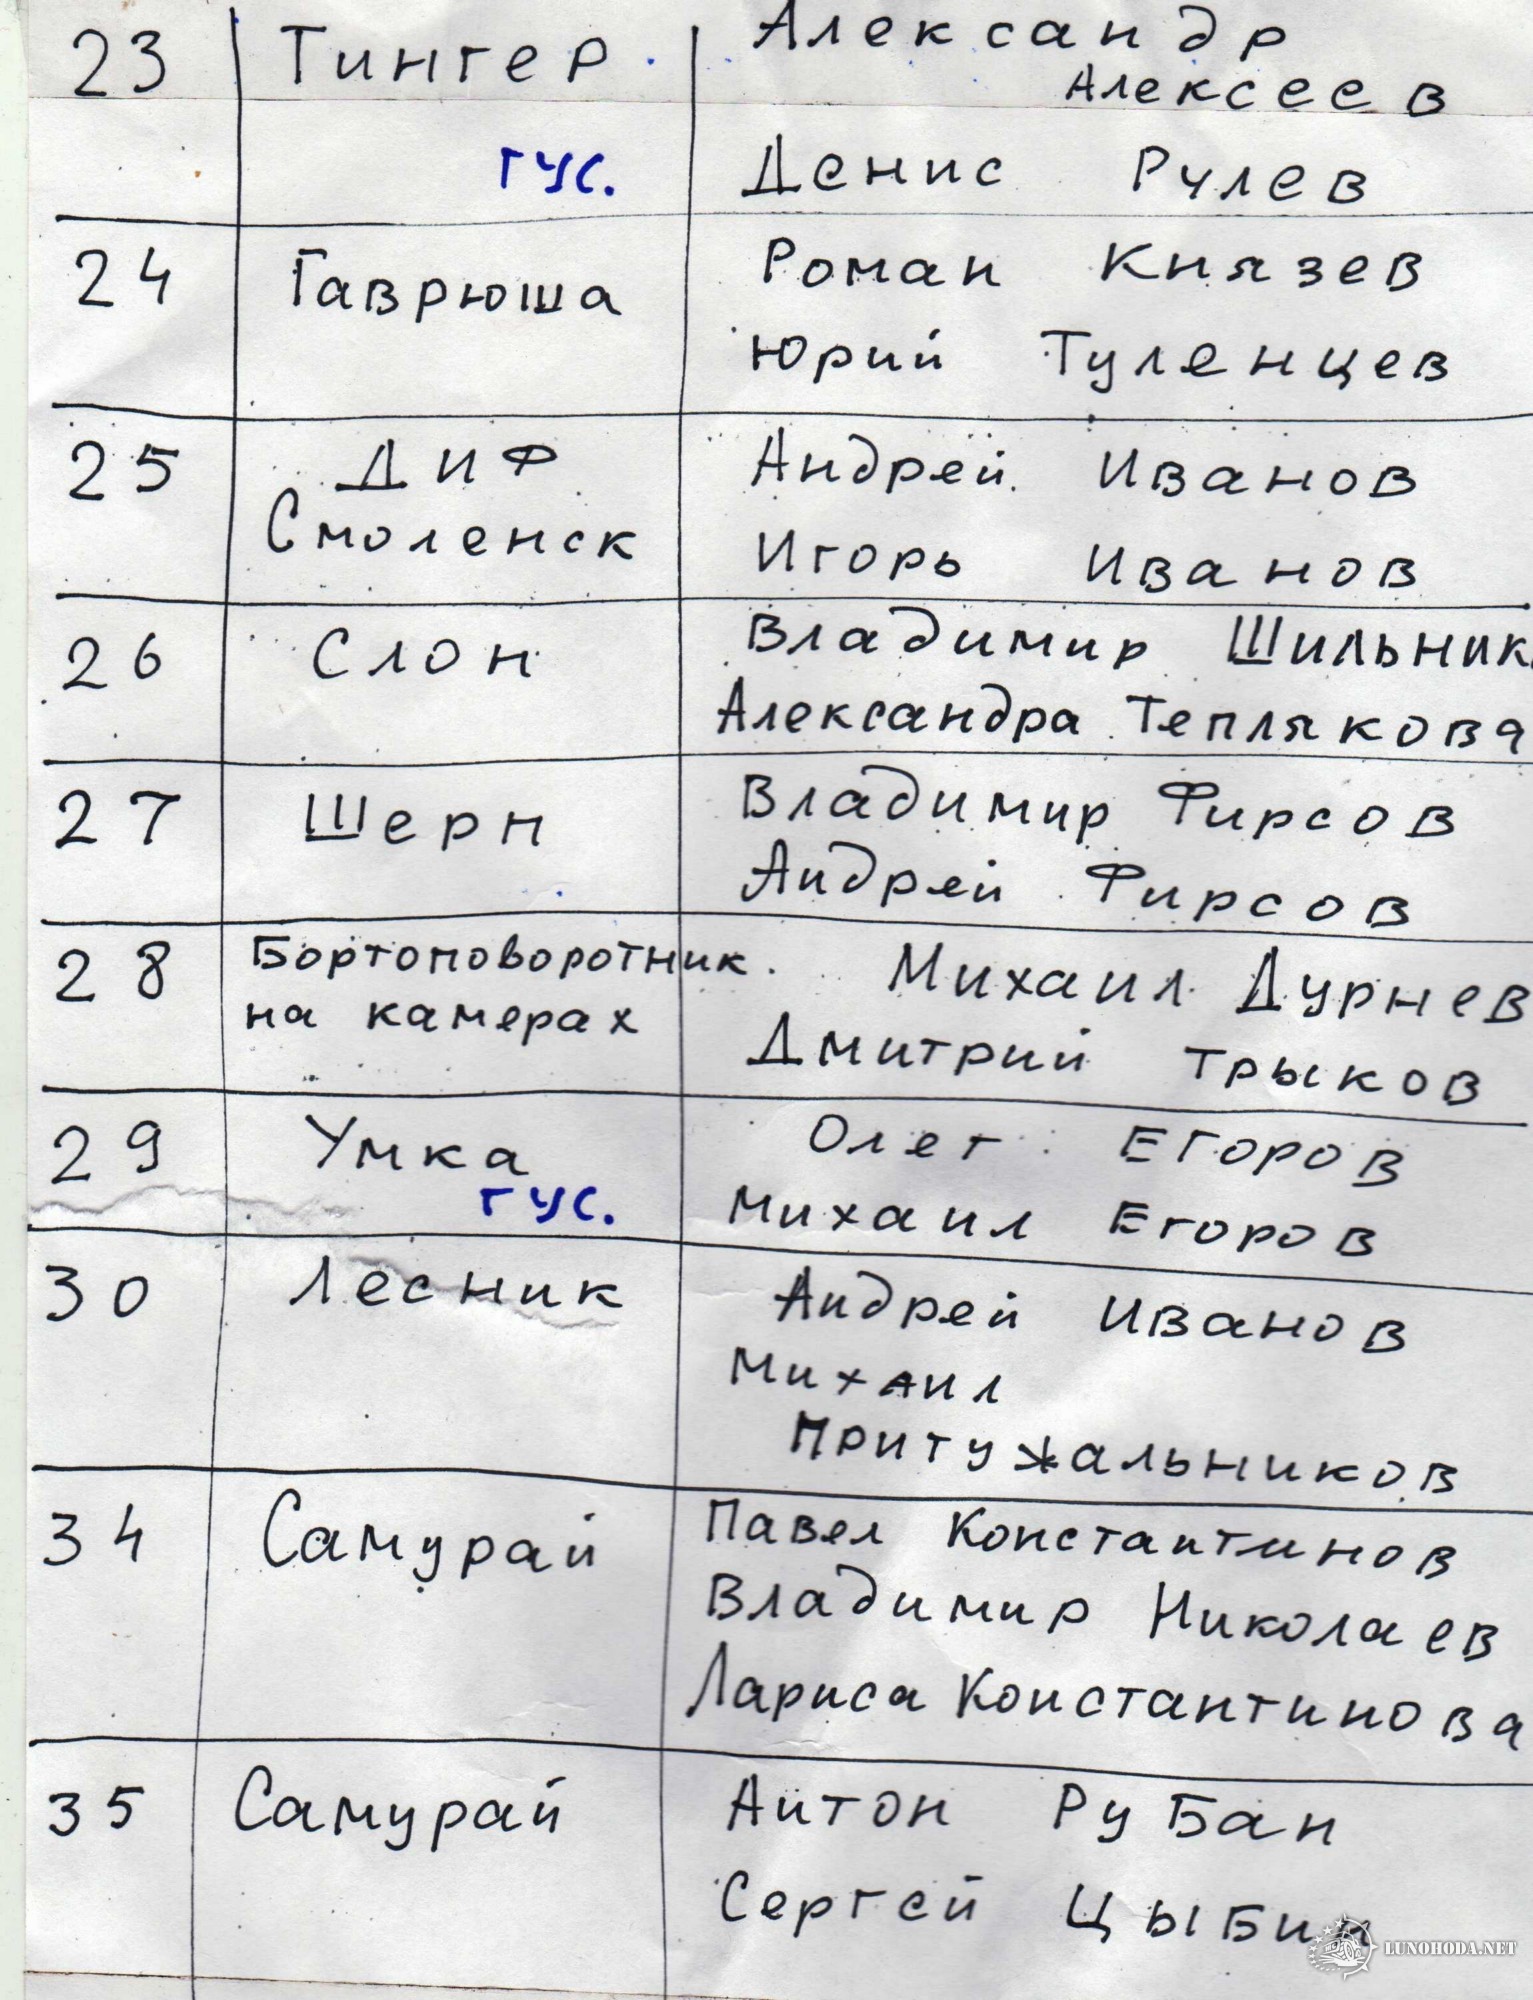 23 Тингер Александр
Алексеев
гус. Денис Рулев
24 Гаврюша Роман Князев
Юрий Туленцев
25 ДИФ Андрей Иванов
Смоленск Игорь Иванов
26 Слон Владимир Шильник
Александра Теплякова
27 Шерп Владимир Фирсов
Андрей Фирсов
28 Бортоповоротник Михаил Дурнев
на камерах Дмитрий Трыков
29 Умка Олег Егоров
гус. Михаил Егоров
30 Лесник Андрей Иванов
Михаил
Притужальников
34 Самурай Павел Константинов
Владимир Николаев
Лариса Константинова
35 Самурай Антон Рубан
Сергей Цыбин
LUNOHODA.NET